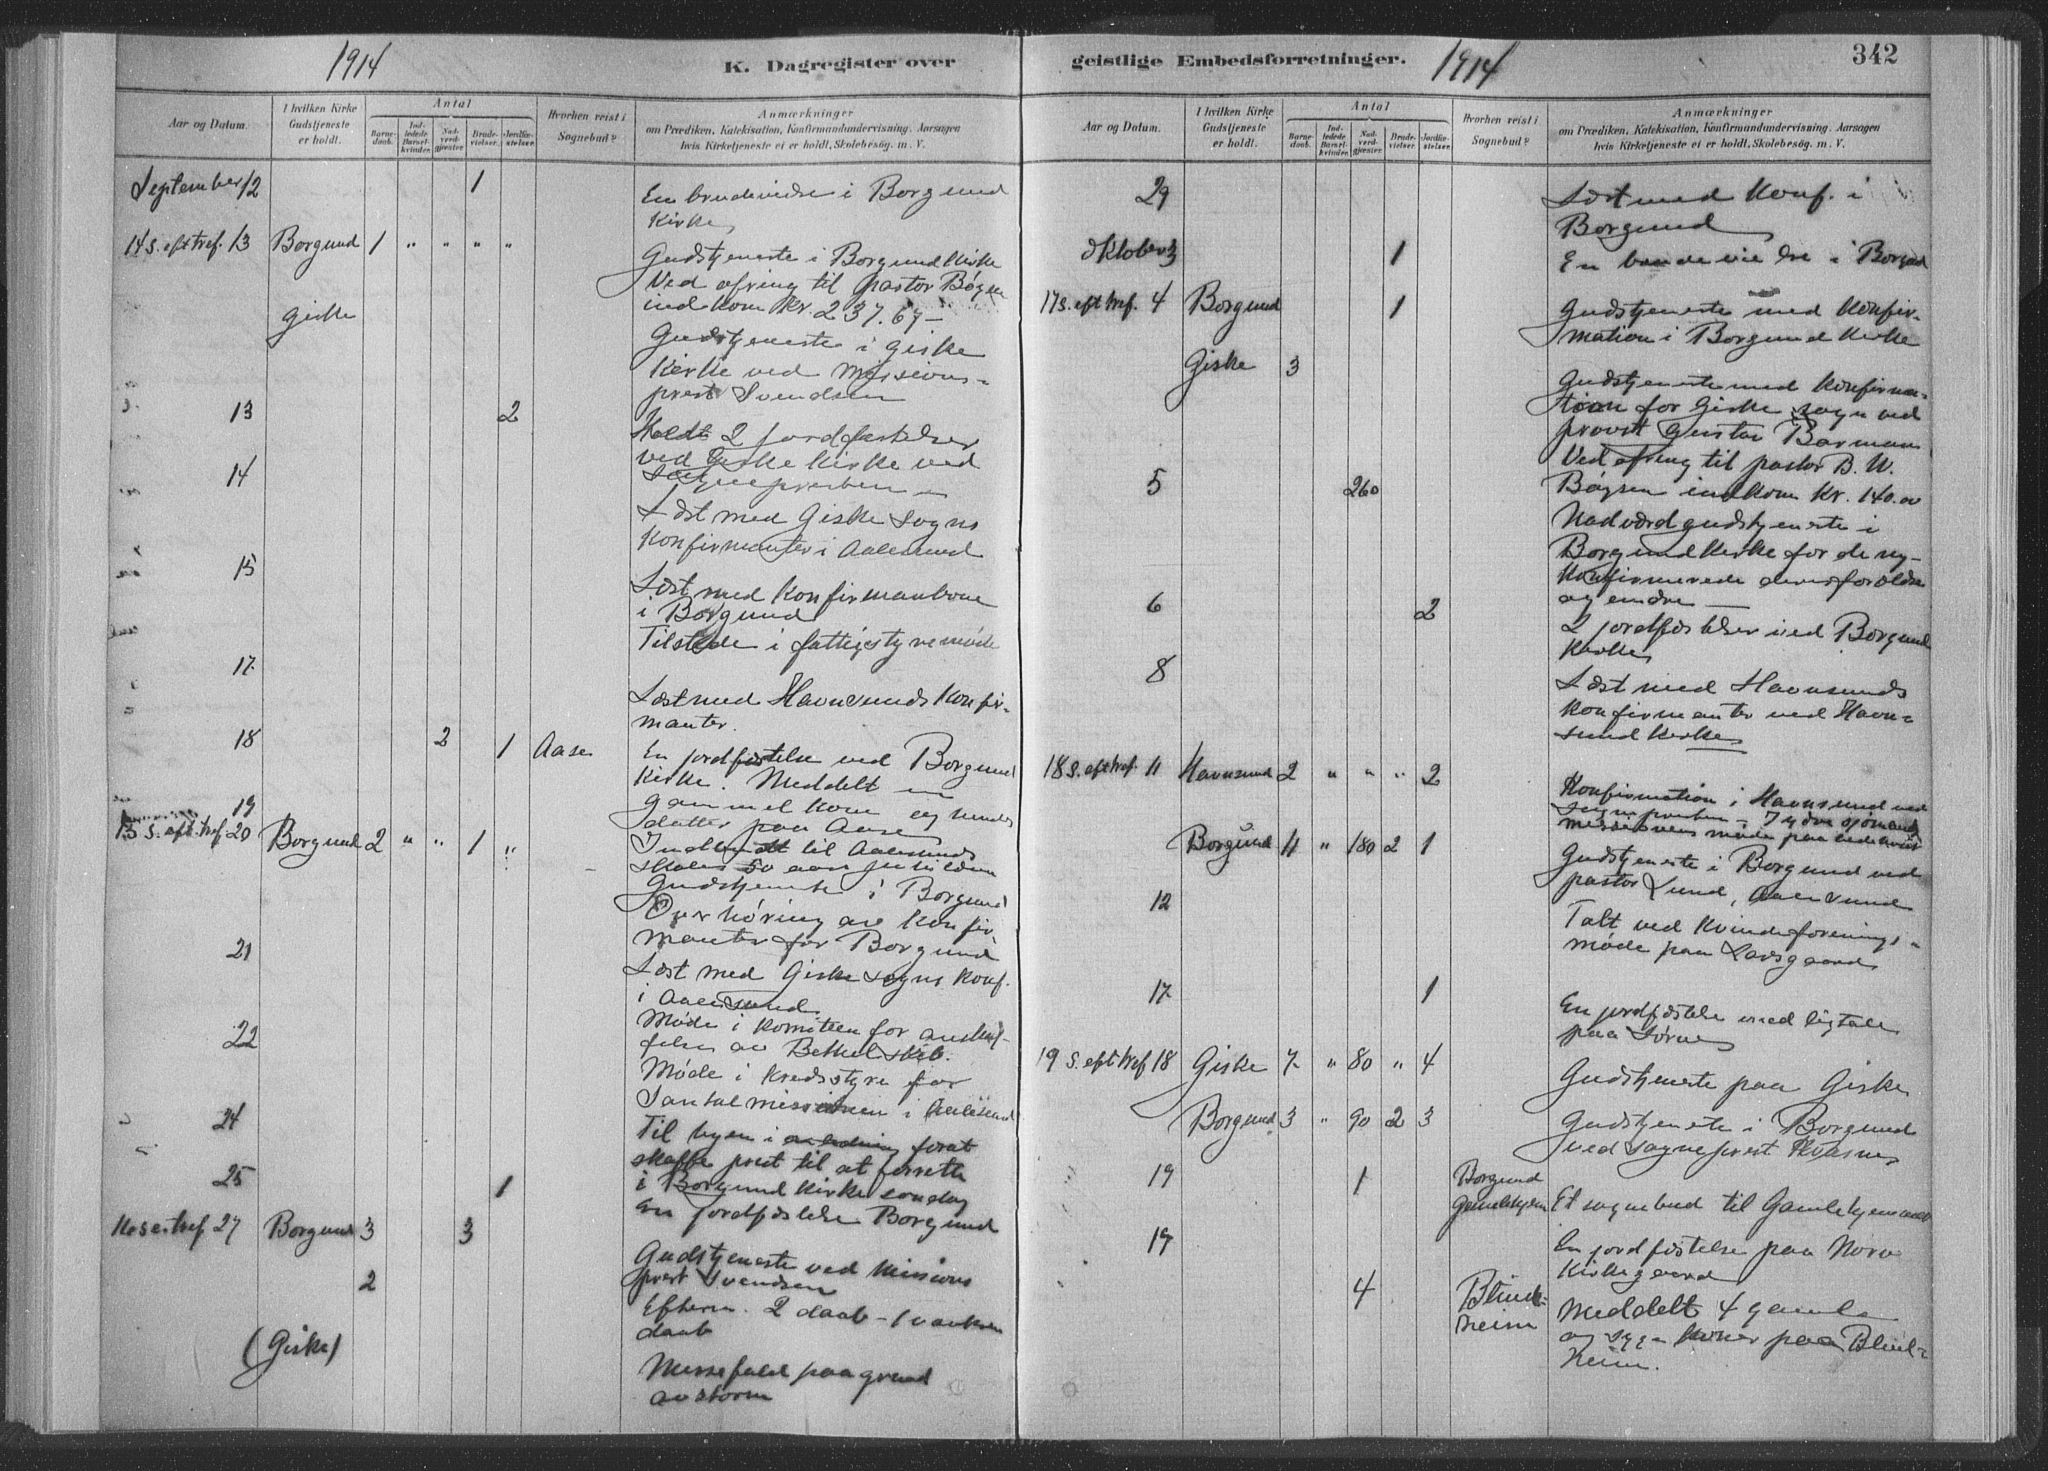 1914
K. Dagregister over
Aar og Datum.
I hvilken Kirke
Gudstjeneste
er holdt.
Antal
Barne-
daab.
Ind-
ledede
Barsel-
kvinder.
Nad-
verd-
gjæster.
Brude-
vielser.
Jordfæ-
stelser.
Hvorhen reist i
Sognebud?
Anmærkninger
om Prædiken, Katekisation, Konfirmandundervisning. Aarsagen
hvis Kirketjeneste ei er holdt, Skolebesøg. m. V.
September 12 1 En brudevielse i Borgund
Kirke
14 S. eft tref. 13 Borgund 1 " " " " Gudstjeneste i Borgund Kirke
Ved ofring til pastor Bøgsen
indkom Kr. 237.67 –
Giske Gudstjeneste i Giske
Kirke ved Missions-
prest Svendsen
13 2 Holdt 2 jordfæstelser
ved Giske Kirke ved
Sognepresten –
14 Læst med Giske Sogns
Konfirmanter i Aalesund
15 Læst med Konfirmanterne
i Borgund
Tilstede i fattigstyremøde
17 Læst med Havnsunds Konfir-
manter.
18 2 1 Aase En jordfæstelse ved Borgund
Kirke. Meddelt en
gammel Kone og hendes
datter paa Aase
19 Indbudt til Aalesunds
skoles 50 aars jubilæum
15 S. eft. tref 20 Borgund 2 " " 1 " Gudstjeneste i Borgund
Overhøring av Konfir-
manter for Borgund
21 Læst med Giske Sogns Konf.
i Aalesund
22 Møde i Komiteen for anskaf-
felse av Bethelskib.
Møde i Kredsstyre for
Santalmissionen i Aalesund
24 Til byen i anledning forat
skaffe prest til at forrette
i Borgund Kirke søndag
25 1 En jordfæstelse Borgund
S. e. tref 27 Borgund 3 3 Gudstjeneste ved Missions
prest Svendsen
2 Efterm. 2 daab – 1 voksen
daab
(Giske) Messefald paa grund
av storm
geistlige Embedsforretninger.
1914
342
Aar og Datum.
I hvilken Kirke
Gudstjeneste
er holdt.
Antal
Barne-
daab.
Ind-
ledede
Barsel-
kvinder.
Nad-
verd-
gjæster.
Brude-
vielser.
Jordfæ-
stelser.
Hvorhen reist i
Sognebud?
Anmærkninger
om Prædiken, Katekisation, Konfirmandundervisning. Aarsagen
hvis Kirketjeneste ei er holdt, Skolebesøg. m. V.
29 Læst med Konf. i
Borgund
Oktober 3 1 En brudevielse i Borgund
17 S. eft tref. 4 Borgund 1 Gudstjeneste med Konfir-
mation i Borgund Kirke
Giske 3 Gudstjeneste med Konfirma-
tion for Giske sogn ved
provst Gustav Barman
Ved ofring til pastor B. W.
Bøgsen indkom Kr. 140.00
5 260 Nadværdgudstjeneste i
Borgund Kirke for de ny-
Konfirmerede deres forældre
og andre –
6 2 2 jordfæstelser ved Borgund
Kirke
8 Læst med Havnsunds
Konfirmanter ved Havn-
sund Kirke
18 S. eft tref. 11 Havnsund 2 " " " 2 Konfirmation i Havnsund ved
Sognepresten –
møde paa
Borgund 11 " 180 2 1 Gudstjeneste i Borgund ved
pastor Lund, Aalesund
12 Talt ved Kvindeforenings-
møde paa Larsgaard
17 1 En jordfæstelse med ligtale
paa
19 S. eft. tref 18 Giske 7 " 80 " 4 Gudstjeneste paa Giske
Borgund 3 " 90 2 3 Gudstjeneste i Borgund
ved sogneprest
19 1 Borgund
Gamlehjem Et sognebud til Gamlehjemmet
19 En jordfæstelse paa Nørve
Kirkegaard
4 Blind-
heim Meddelt 4 gamle
og syge Koner paa Blind-
heim.